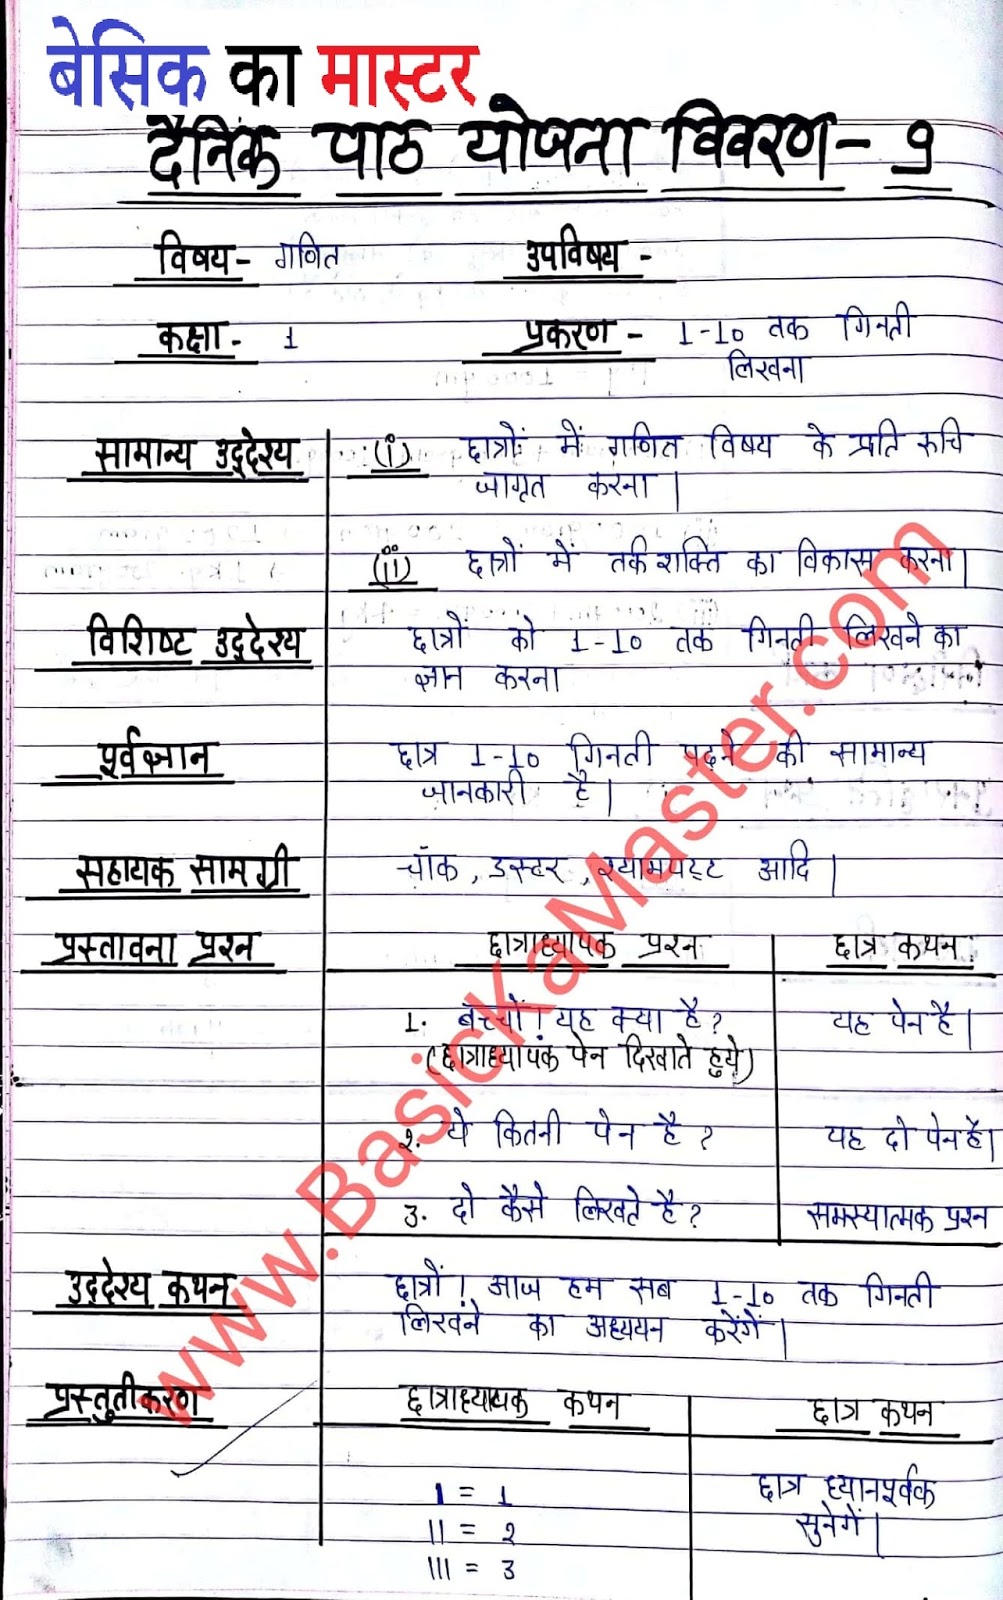 बेसिक का मास्टर
दैनिक पाठ योजना विवरण- 9
विषय- गणित उपविषय -
कक्षा- 1 प्रकरण - 1-10 तक गिनती
लिखना
सामान्य उद्देश्य (i) छात्रों में गणित विषय के प्रति रुचि
जागृत करना।
(ii) छात्रों में तर्कशक्ति का विकास करना।
विशिष्ट उद्देश्य छात्रों को 1-10 तक गिनती लिखने का
ज्ञान करना
पूर्वज्ञान छात्र 1-10 गिनती पढ़ने की सामान्य
जानकारी है।
सहायक सामग्री चॉक, डस्टर, श्यामपट्ट आदि।
प्रस्तावना प्रश्न छात्राध्यापक प्रश्न छात्र कथन
1. बच्चों! यह क्या है? यह पेन है।
(छात्राध्यापक पेन दिखाते हुये)
2. ये कितनी पेन है? यह दो पेन है।
3. दो कैसे लिखते है? समस्यात्मक प्रश्न
उद्देश्य कथन छात्रों! आज हम सब 1-10 तक गिनती
लिखने का अध्ययन करेंगें।
प्रस्तुतीकरण छात्राध्यापक कथन छात्र कथन
I = 1 छात्र ध्यानपूर्वक
II = 2 सुनेगें।
III = 3
www.BasicKaMaster.com